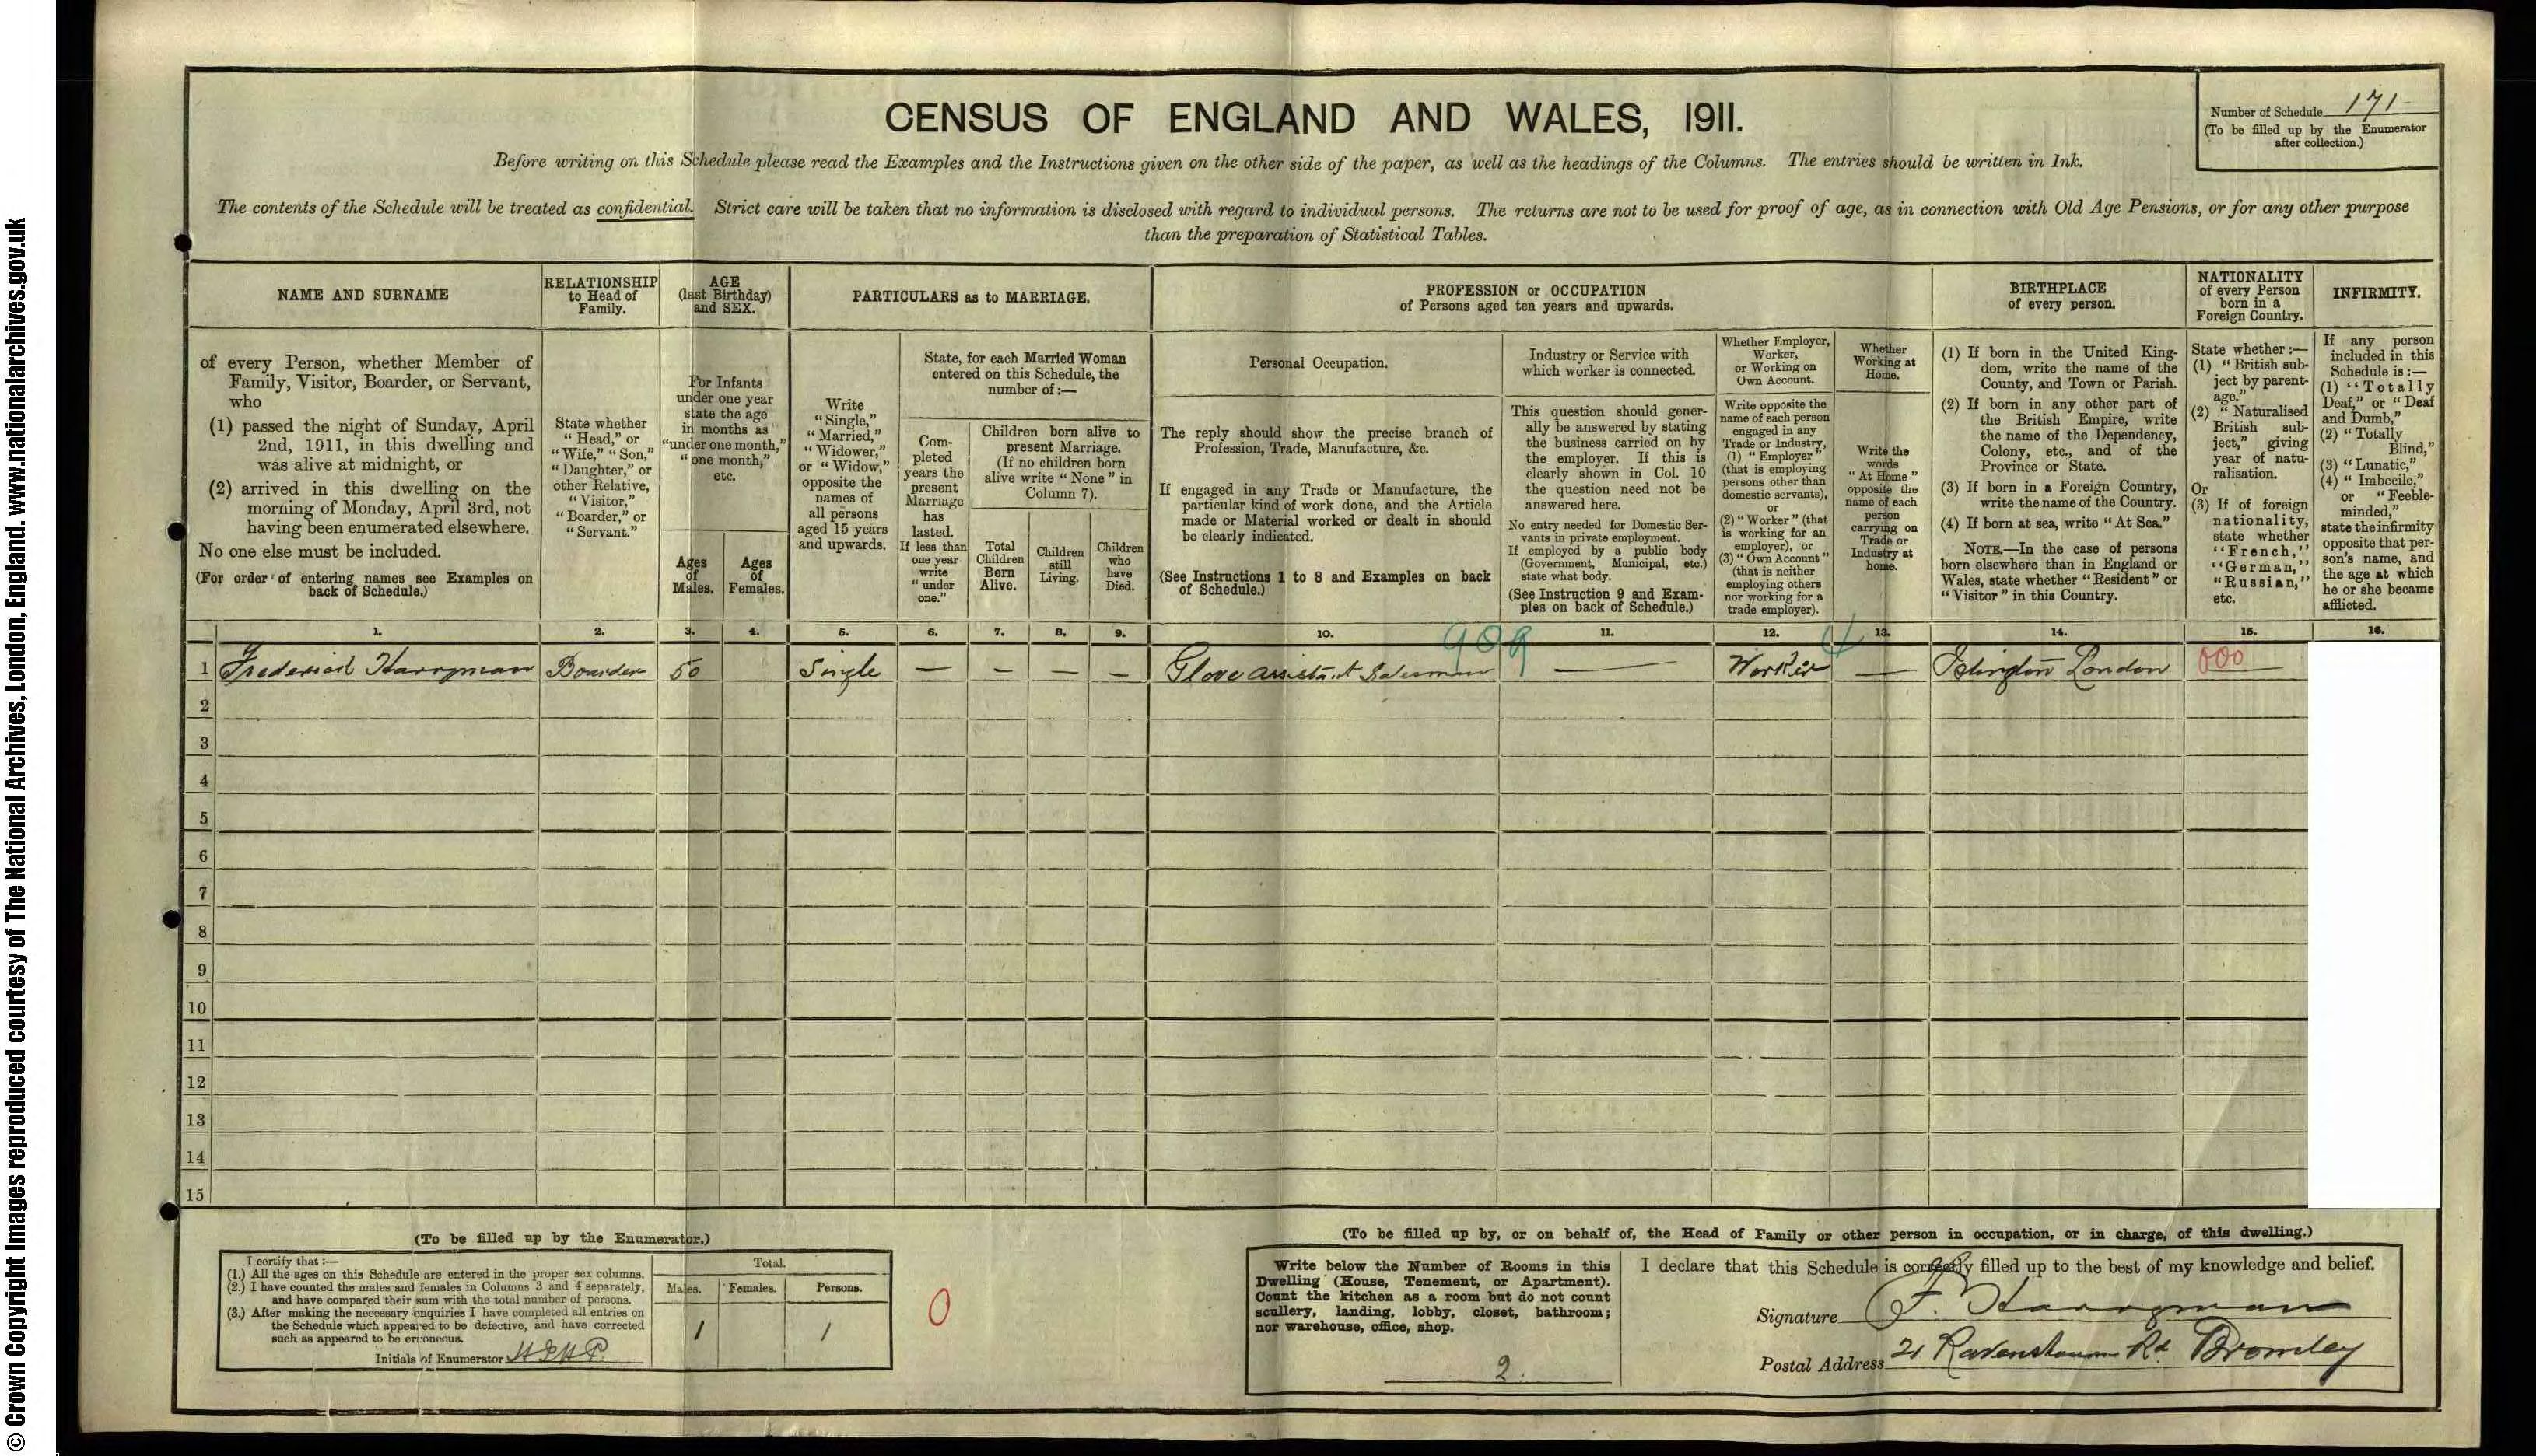 © Crown Copyright Images reproduced courtesy of The National Archives, London, England. www.nationalarchives.gov.uk
CENSUS OF ENGLAND AND WALES, 1911.
Number of Schedule 171
(To be filled up by the Enumerator
after collection.)
Before writing on this Schedule please read the Examples and the Instructions given on the other side of the paper, as well as the headings of the Columns. The entries should be written in Ink.
The contents of the Schedule will be treated as confidential. Strict care will be taken that no information is disclosed with regard to individual persons. The returns are not to be used for proof of age, as in connection with Old Age Pensions, or for any other purpose
than the preparation of Statistical Tables.
NAME AND SURNAME
of every Person, whether Member of
Family, Visitor, Boarder, or Servant,
who
(1) passed the night of Sunday, April
2nd, 1911, in this dwelling and
was alive at midnight, or
(2) arrived in this dwelling on the
morning of Monday, April 3rd, not
having been enumerated elsewhere.
No one else must be included.
(For order of entering names see Examples on
back of Schedule.)
RELATIONSHIP
to Head of
Family.
State whether
"Head," or
"Wife," "Son,"
"Daughter," or
other Relative,
"Visitor,"
"Boarder," or
"Servant."
AGE
(last Birthday)
and SEX.
For Infants
under one year
state the age
in months as
"under one month,"
"one month,"
etc.
Ages
of
Males.
Ages
of
Females.
PARTICULARS as to MARRIAGE.
Write
"Single,"
"Married,"
"Widower,"
or "Widow,"
opposite the
names of
all persons
aged 15 years
and upwards.
State, for each Married Woman
entered on this Schedule, the
number of:—
Com-
pleted
years the
present
Marriage
has
lasted.
If less than
one year
write
"under
one."
Children born alive to
present Marriage.
(If no children born
alive write "None" in
Column 7).
Total
Children
Born
Alive.
Children
still
Living.
Children
who
have
Died.
PROFESSION or OCCUPATION
of Persons aged ten years and upwards.
Personal Occupation.
The reply should show the precise branch of
Profession, Trade, Manufacture, &c.
If engaged in any Trade or Manufacture, the
particular kind of work done, and the Article
made or Material worked or dealt in should
be clearly indicated.
(See Instructions 1 to 8 and Examples on back
of Schedule.)
Industry or Service with
which worker is connected.
This question should gener-
ally be answered by stating
the business carried on by
the employer. If this is
clearly shown in Col. 10
the question need not be
answered here.
No entry needed for Domestic Ser-
vants in private employment.
If employed by a public body
(Government, Municipal, etc.)
state what body.
(See Instruction 9 and Exam-
ples on back of Schedule.)
Whether Employer,
Worker,
or Working on
Own Account.
Write opposite the
name of each person
engaged in any
Trade or Industry,
(1) "Employer"
(that is employing
persons other than
domestic servants),
or
(2) "Worker" (that
is working for an
employer), or
(3) "Own Account"
(that is neither
employing others
nor working for a
trade employer).
Whether
Working at
Home.
Write the
words
"At Home"
opposite the
name of each
person
carrying on
Trade or
Industry at
home.
BIRTHPLACE
of every person.
(1) If born in the United King-
dom, write the name of the
County, and Town or Parish.
(2) If born in any other part of
the British Empire, write
the name of the Dependency,
Colony, etc., and of the
Province or State.
(3) If born in a Foreign Country,
write the name of the Country.
(4) If born at sea, write "At Sea."
NOTE.—In the case of persons
born elsewhere than in England or
Wales, state whether "Resident" or
"Visitor" in this Country.
NATIONALITY
of every Person
born in a
Foreign Country.
State whether:—
(1) "British sub-
ject by parent-
age."
(2) "Naturalised
British sub-
ject," giving
year of natu-
ralisation.
Or
(3) If of foreign
nationality,
state whether
"French,"
"German,"
"Russian,"
etc.
INFIRMITY.
If any person
included in this
Schedule is:—
(1) "Totally
Deaf," or "Deaf
and Dumb,"
(2) "Totally
Blind,"
(3) "Lunatic,"
(4) "Imbecile,"
or "Feeble-
minded,"
state the infirmity
opposite that per-
son's name, and
the age at which
he or she became
afflicted.
1. 2. 3. 4. 5. 6. 7. 8. 9. 10. 11. 12. 13. 14. 15. 16.
1 Frederick Harryman Boarder 50 Single — — — — Glove assistant Salesman — Worker — Islington London 000
2
3
4
5
6
7
8
9
10
11
12
13
14
15
(To be filled up by the Enumerator.)
I certify that:—
(1.) All the ages on this Schedule are entered in the proper sex columns.
(2.) I have counted the males and females in Columns 3 and 4 separately,
and have compared their sum with the total number of persons.
(3.) After making the necessary enquiries I have completed all entries on
the Schedule which appeared to be defective, and have corrected
such as appeared to be erroneous.
Initials of Enumerator
Total.
Males. Females. Persons.
1 1
0
(To be filled up by, or on behalf of, the Head of Family or other person in occupation, or in charge, of this dwelling.)
Write below the Number of Rooms in this
Dwelling (House, Tenement, or Apartment).
Count the kitchen as a room but do not count
scullery, landing, lobby, closet, bathroom;
nor warehouse, office, shop.
2.
I declare that this Schedule is correctly filled up to the best of my knowledge and belief.
Signature F. Harryman
Postal Address 21 Ravensbourne Rd Bromley